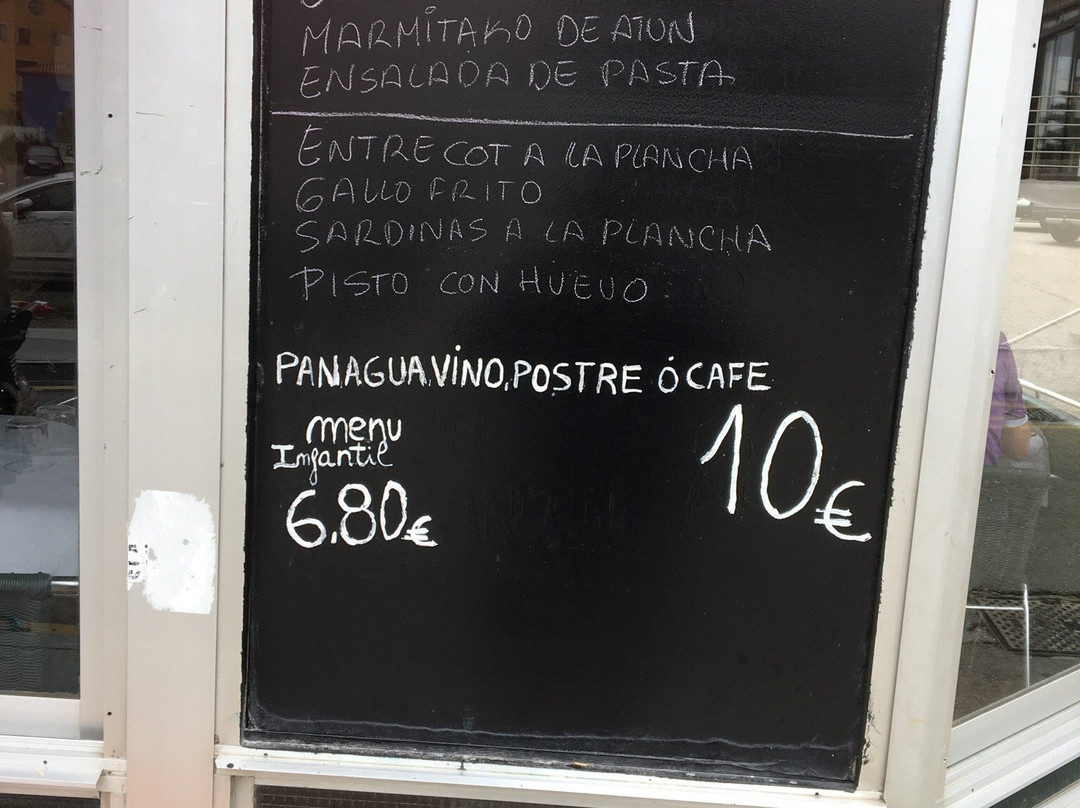 MARMITAKO DE ATUN
ENSALADA DE PASTA
ENTRECOT A LA PLANCHA
GALLO FRITO
SARDINAS A LA PLANCHA
PISTO CON HUEVO
PAN,AGUA,VINO,POSTRE Ó CAFE
menu
Infantil
6.80€
10€